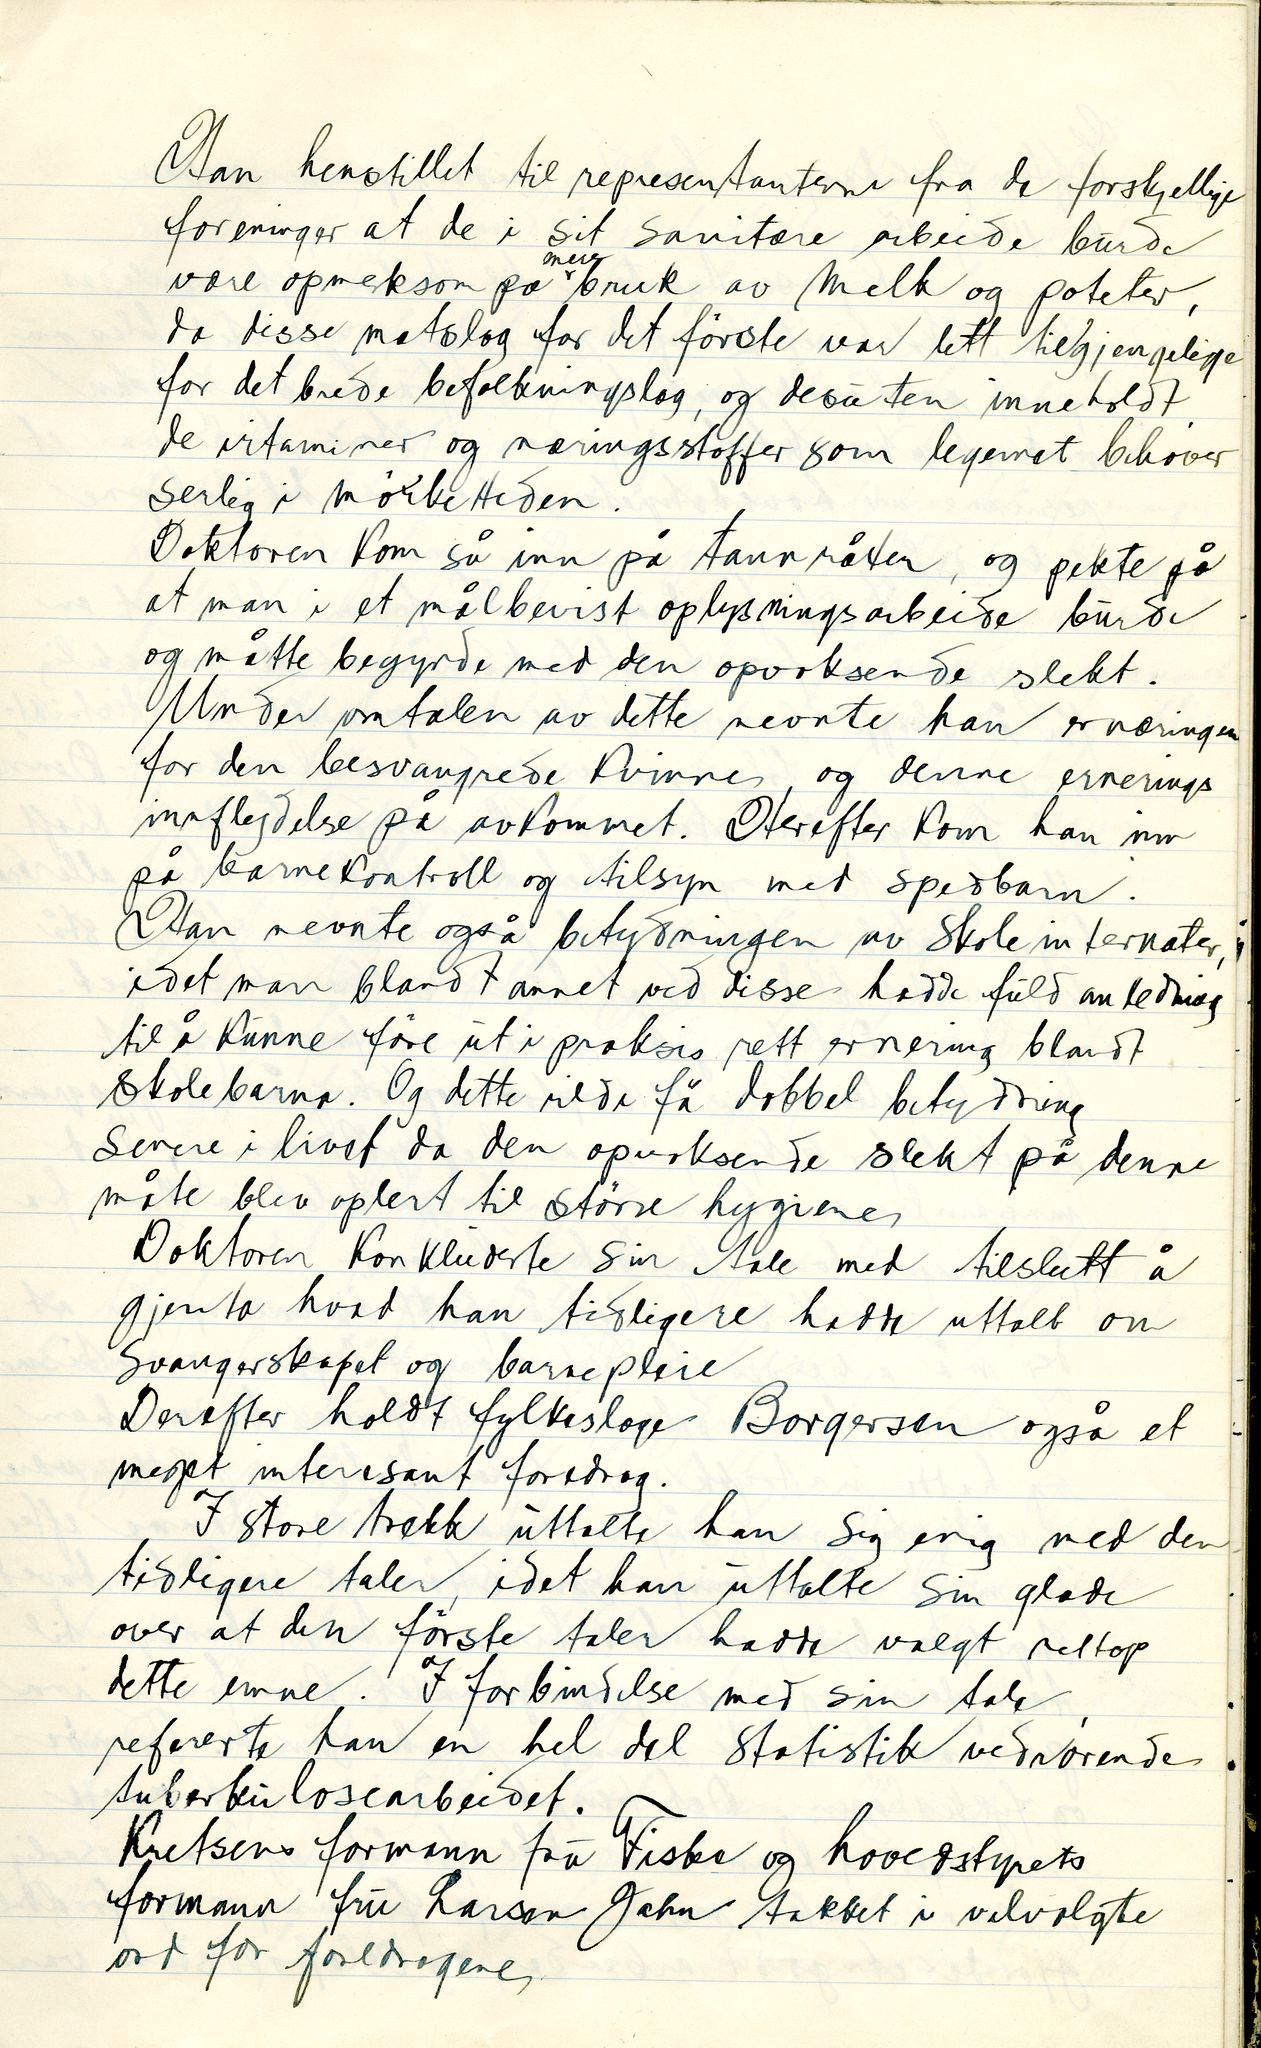 Han henstillet til representanterne fra de forskjellige
foreninger at de i sit sanitære arbeide burde
være opmerksom på mere bruk av melk og poteter,
da disse matslag for det förste var lett tilgjengelige
for det brede befolkningslag, og desuten inneholdt
de vitaminer og næringsstoffer som legemet behöver
serlig i mörketiden.
Doktoren kom så inn på tannråten, og pekte på
at man i et målbevist oplysningsarbeide burde
og måtte begynde med den opvoksende slekt.
Under omtalen av dette nevnte han ernæringen
for den besvangrede kvinne, og denne ernerings
innflydelse på avkommet. Herefter kom han inn
på barnekontroll og tilsyn med spedbarn.
Han nevnte også betydningen av skoleinternater,
idet man blandt annet ved disse hadde fuld anledning
til å kunne före ut i praksis rett ernering blandt
skolebarna. Og dette vilde få dobbel betydning
senere i livet da den opvoksende slekt på denne
måte blev oplert til större hygiene,
Doktoren konkluderte sin tale med tilslutt å
gjenta hvad han tidligere hadde uttalt om
svangerskapet og barnepleie
Derefter holdt fylkeslege Borgersen også et
meget interesant foredrag.
I store trekk uttalte han sig enig med den
tidligere taler, idet han uttalte sin glede
over at den förste taler hadde valgt nettop
dette emne. I forbindelse med sin tale,
refererte han en hel del statistik vedrörende
tuberkulosearbeidet.
Kretsens formann fru Fiske og hovedstyrets
formann fru Larsen Jahn takket i velvalgte
ord for foredragene,